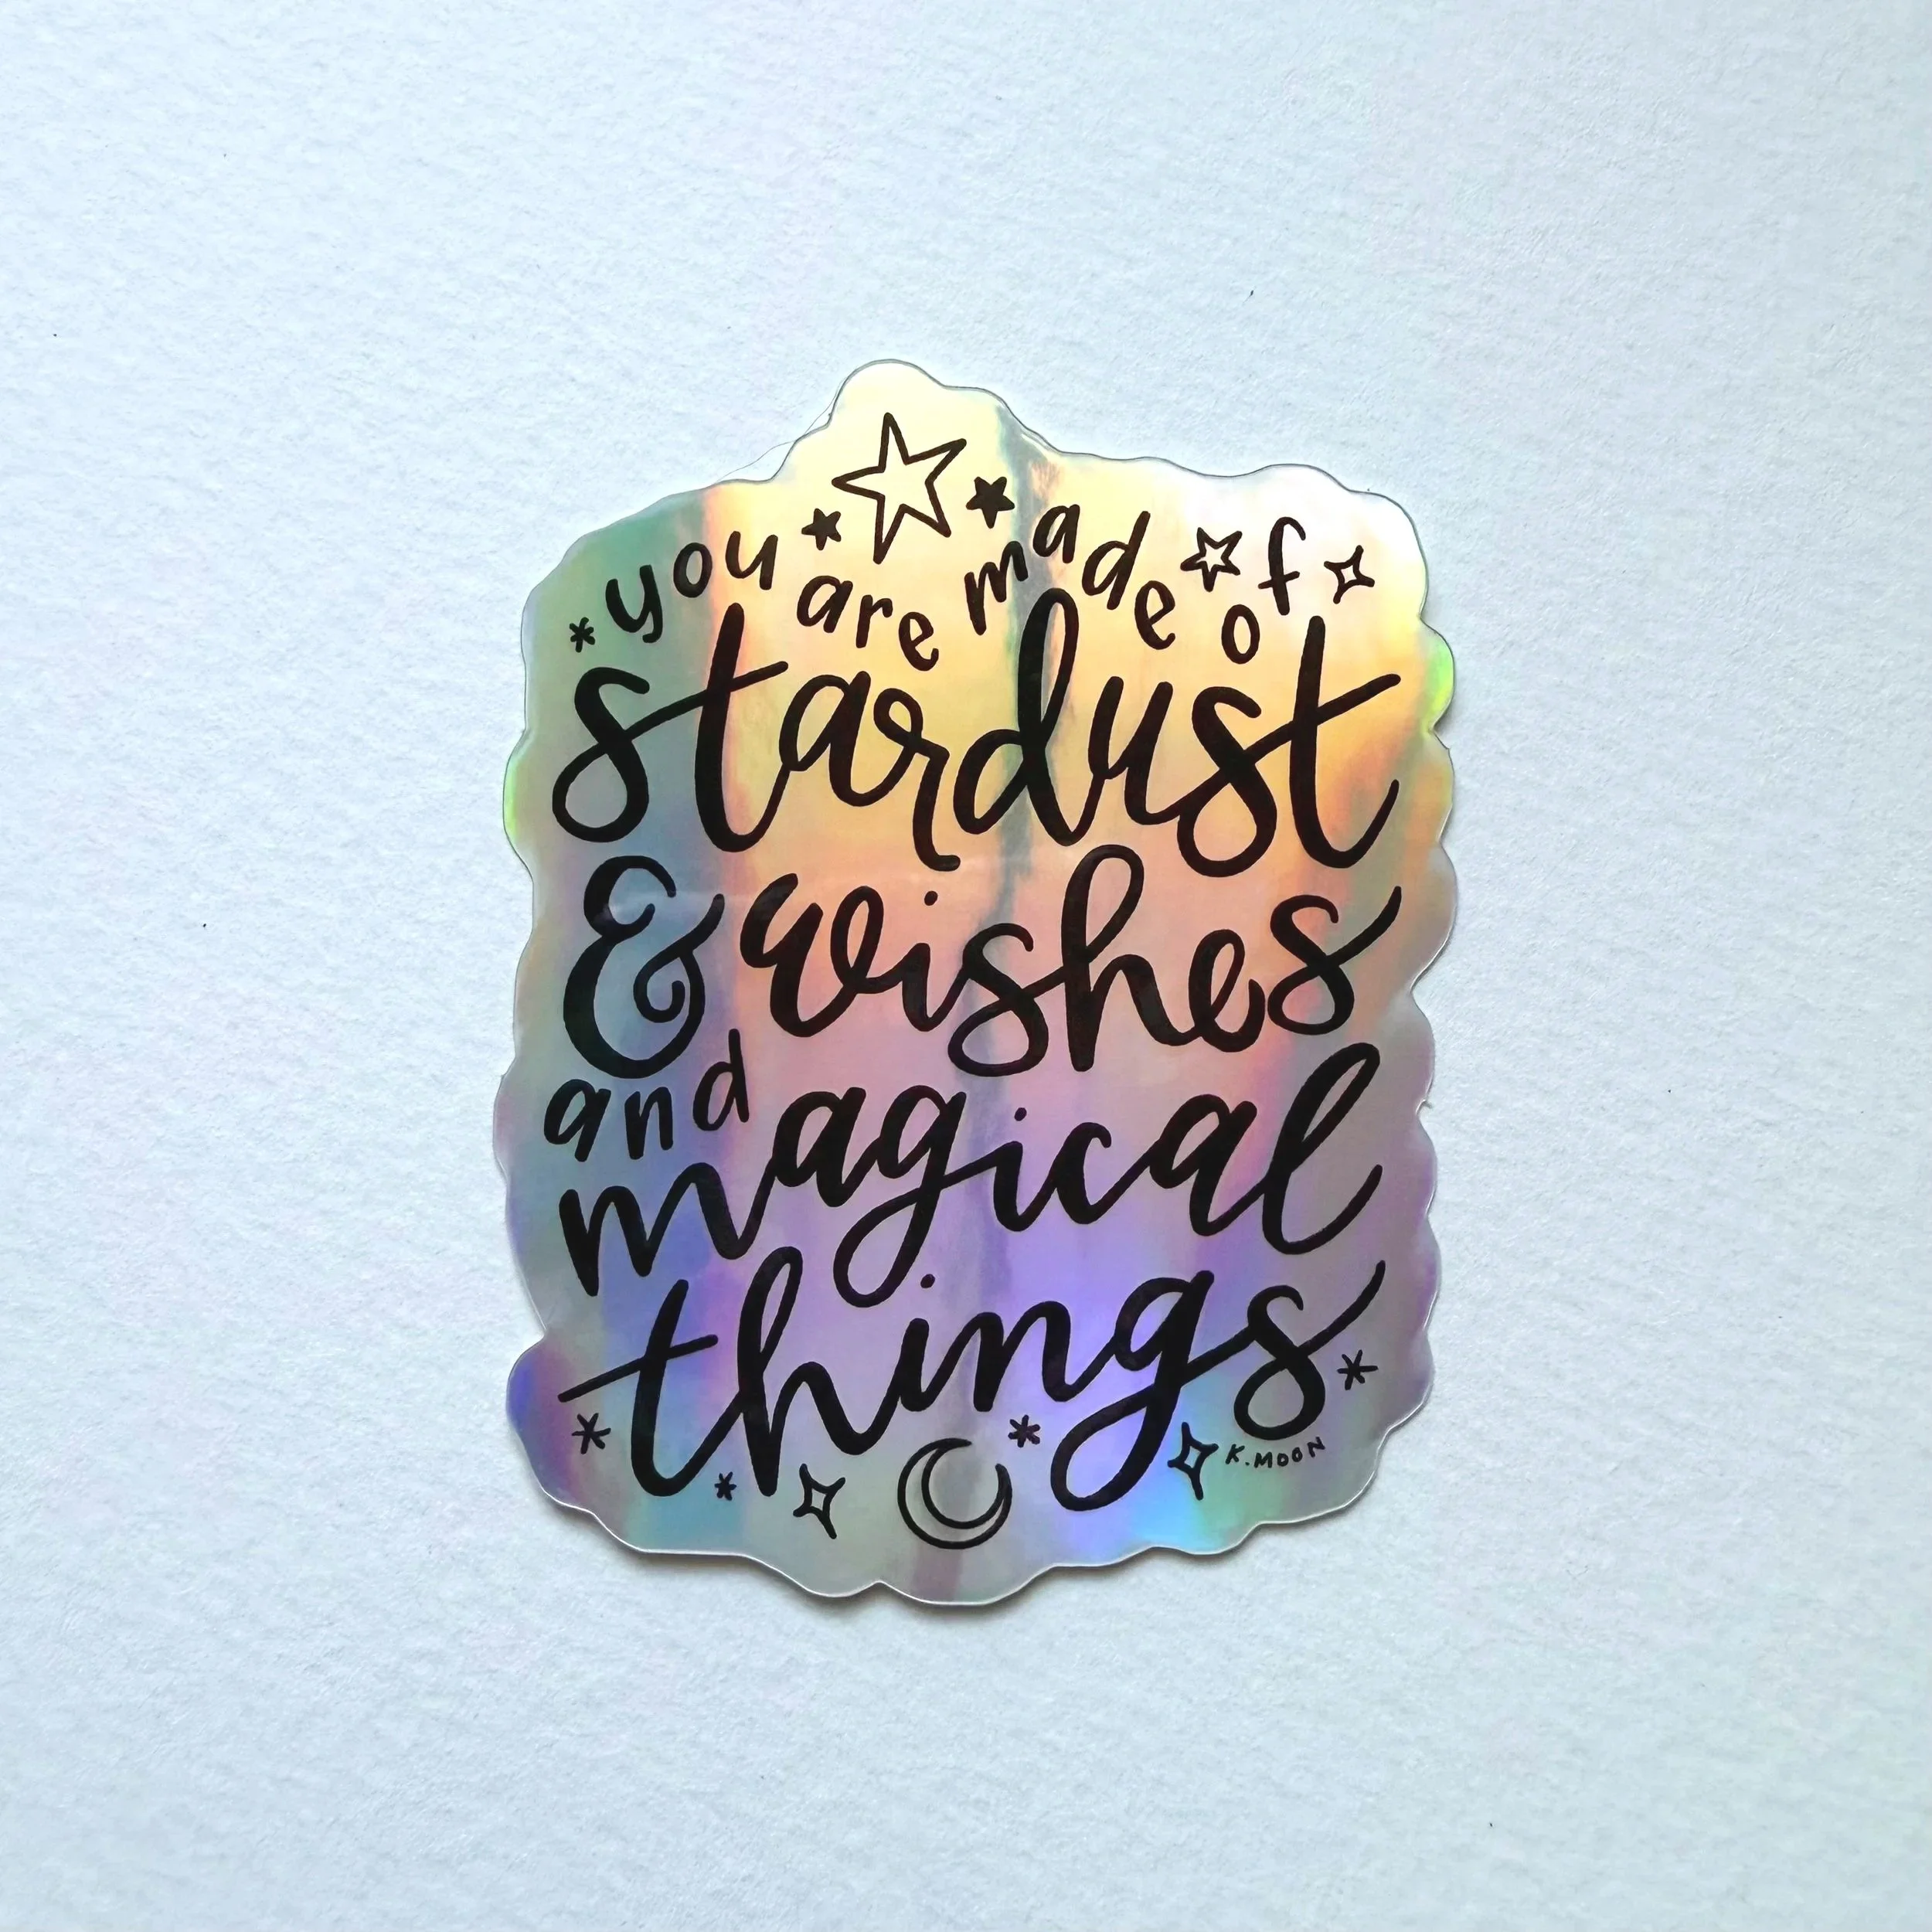 you are made of
stardust
& wishes
and
magical
things
K.MOON